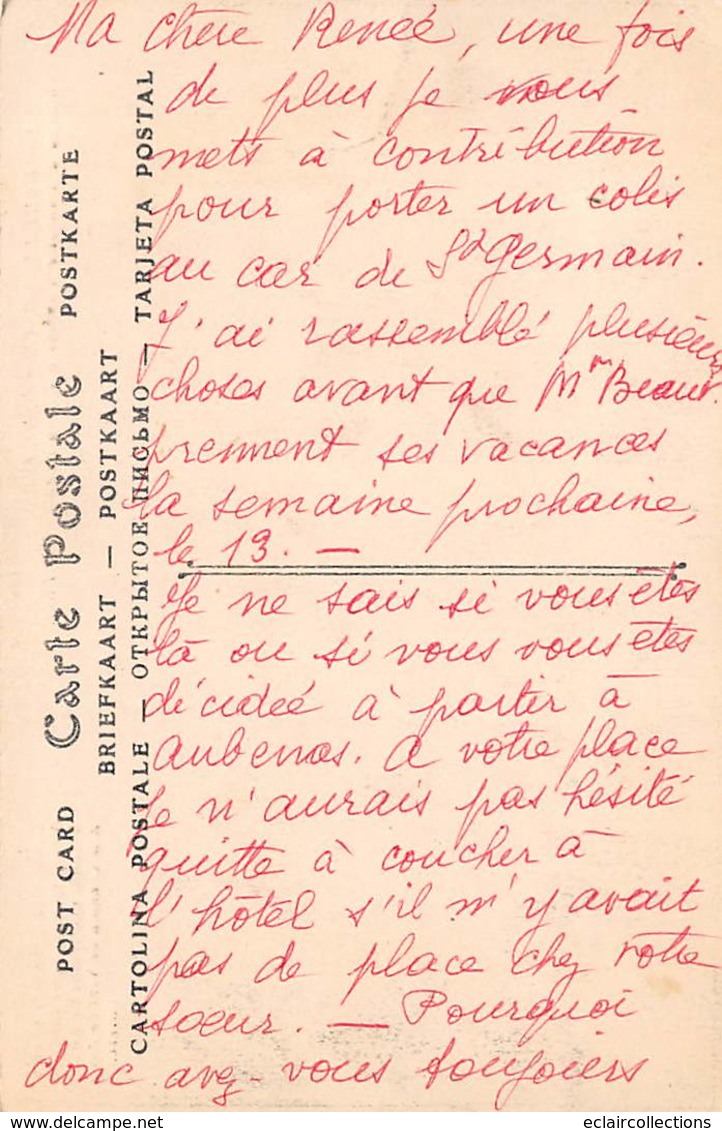 Ma chère Reneé, une fois
de plus je vous
mets à contribution
pour porter un colis
au car de St Germain.
J'ai rassemblé plusieurs
choses avant que Mm Beauv.
prennent ses vacances
la semaine prochaine,
le 13. —
Je ne sais si vous êtes
là ou si vous vous êtes
décideé à partir à
Aubenas. A votre place
je n'aurais pas hésité
quitte à coucher à
l'hôtel s'il m'y avait
pas de place chez votre
sœur. — Pourquoi
donc avez-vous toujours
POST CARD Carte Postale POSTKARTE
BRIEFKAART — POSTKAART
CARTOLINA POSTALE — ОТКРЫТОЕ ПИСЬМО — TARJETA POSTAL
eclaircollections